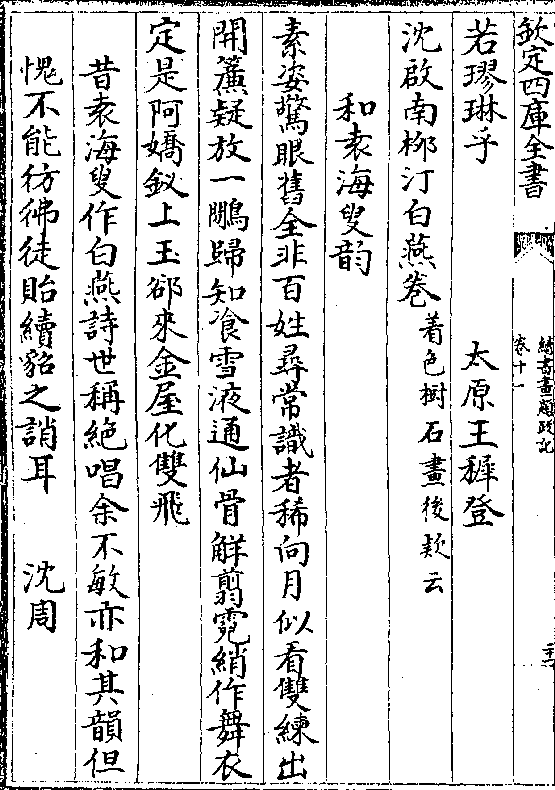 欽定四庫全書
繪事畫題跋記
卷十一
若璆琳乎　　　太原王穉登
沈啟南柳汀白燕卷着色樹石畫後欵云
和袁海叟韵
素姿驚眼舊全非百姓尋常識者稀向月似看雙練出
開簾疑放一鵰歸知飡雪液通仙骨鮮翦霓綃作舞衣
定是阿嬌釵上玉郤來金屋化雙飛
昔袁海叟作白燕詩世稱絶唱余不敏亦和其韻但
愧不能彷彿徒貽續貂之誚耳　　沈周